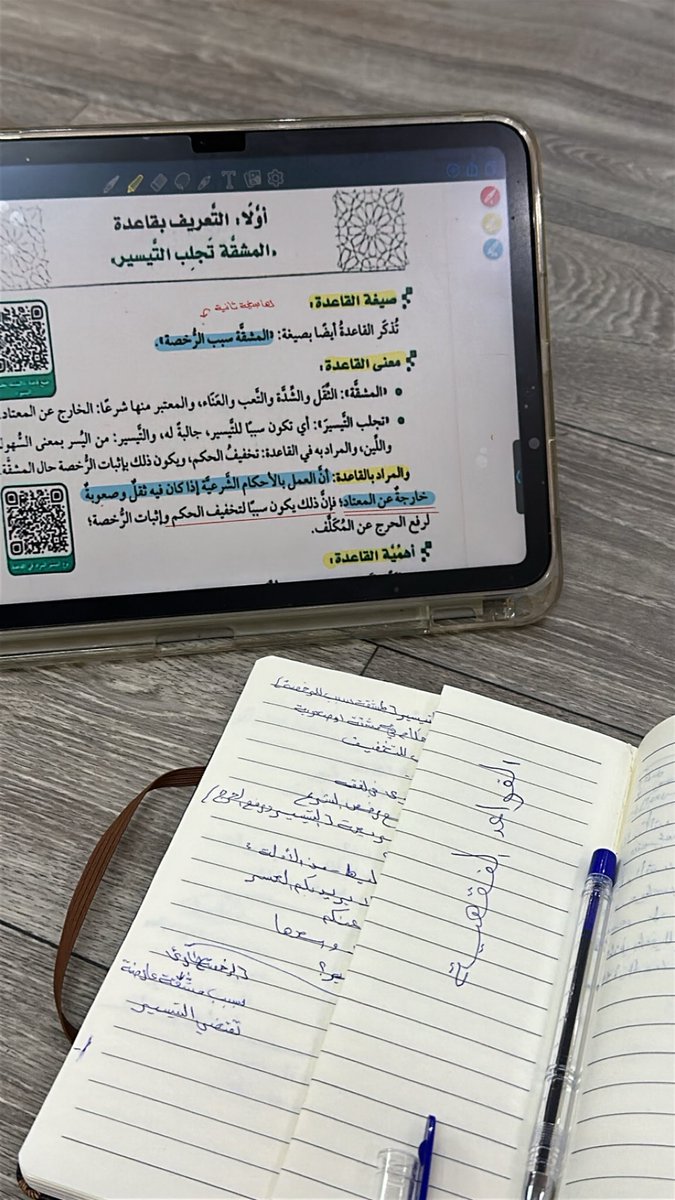 أوّلًا: التَّعريف بقاعدة
«المشقَّة تَجلِب التَّيسير»
صيغة القاعدة:
لها صيغة ثانية
تُذكَر القاعدةُ أيضًا بصيغة: «المشقَّة سبب الرُّخصة».
معنى القاعدة:
«المشقَّة»: الثِّقَل والشِّدَّة والتَّعب والعَنَاء، والمعتبر منها شرعًا: الخارج عن المعتاد
«تجلب التَّيسيرَ»: أي تكون سببًا للتَّيسير، جالبةً له، والتَّيسير: من اليُسر بمعنى السُّهول
واللِّين، والمراد به في القاعدة: تخفيفُ الحكم، ويكون ذلك بإثبات الرُّخصة حال المشقَّة
والمراد بالقاعدة: أنَّ العمل بالأحكام الشَّرعيَّة إذا كان فيه ثقلٌ وصعوبةٌ
خارجةٌ عن المعتاد؛ فإنَّ ذلك يكون سببًا لتخفيف الحكم وإثبات الرُّخصة؛
لرفع الحرج عن المُكلَّف.
أهمِّيَّة القاعدة:
القواعد الفقهية
للتخفيف
يريد بكم العسر
عنكم
وسعها
بسبب مشقة عارضة
تقتضي التيسير